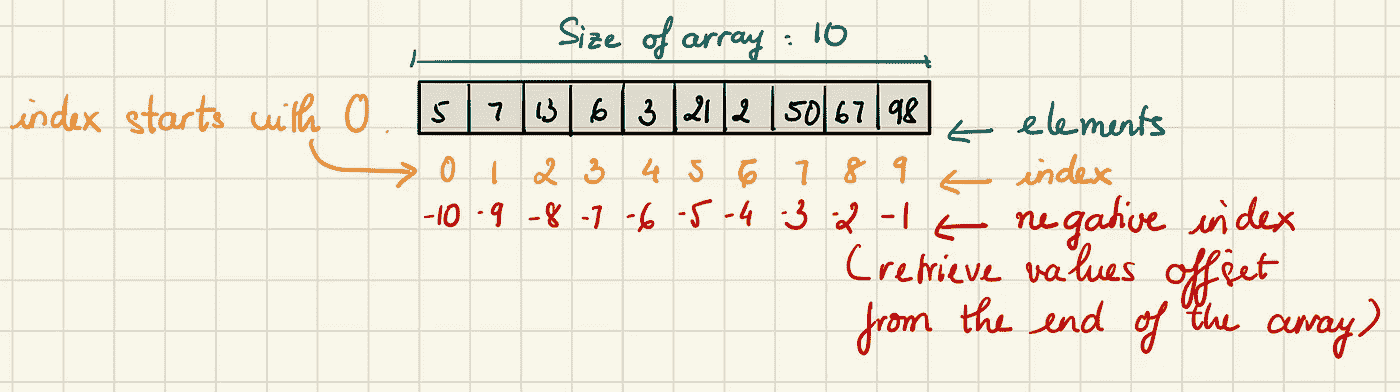 Size of array : 10
index starts with 0.
5 7 13 6 3 21 2 50 67 98
elements
0 1 2 3 4 5 6 7 8 9
index
-10 -9 -8 -7 -6 -5 -4 -3 -2 -1
negative index
(retrieve values offset
from the end of the array)